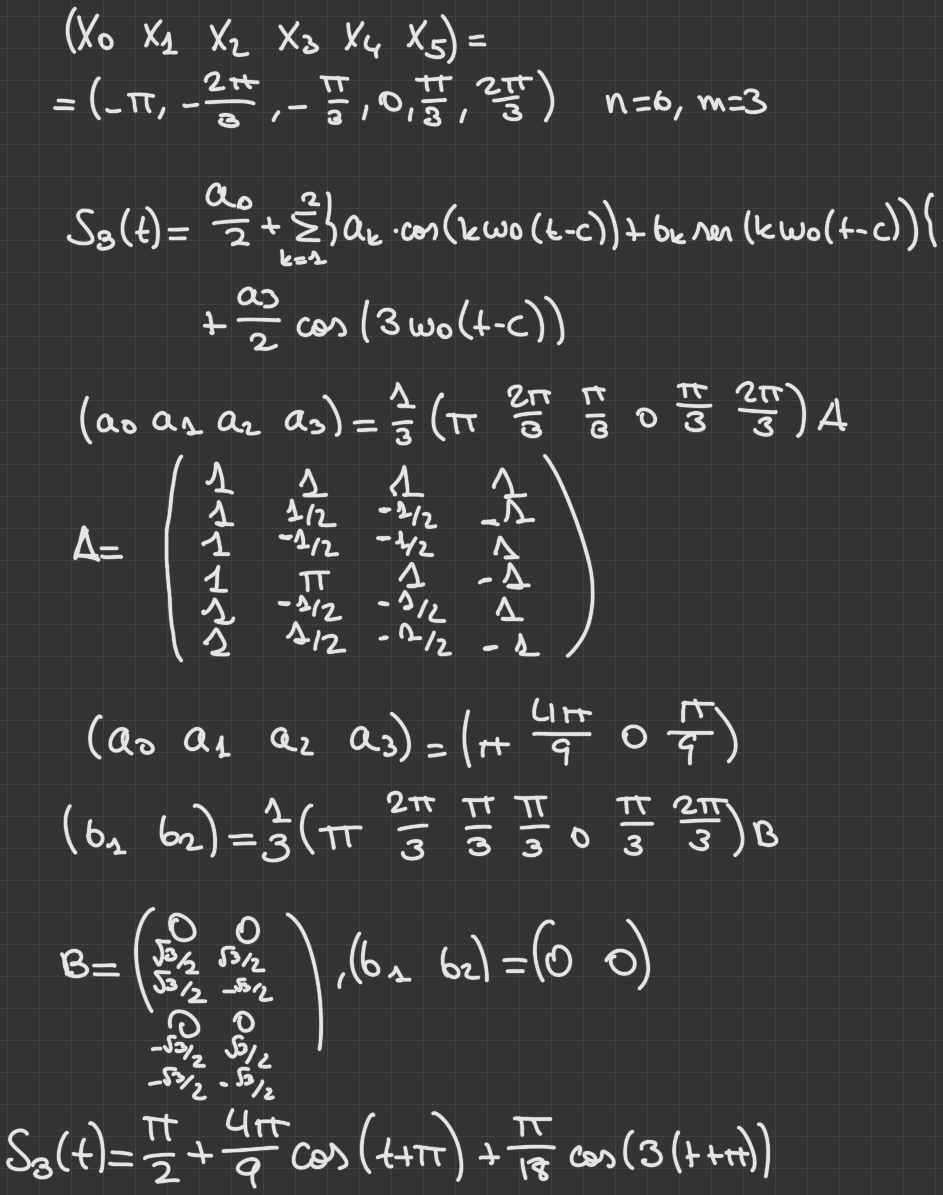 (x₀ x₁ x₂ x₃ x₄ x₅) =
= (-π, -2π/3, -π/3, 0, π/3, 2π/3) n=6, m=3
S₃(t) = a₀/2 + Σ_{k=1}^{2} } aₖ · cos(kω₀(t-c)) + bₖ sen(kω₀(t-c)) {
+ a₃/2 cos(3ω₀(t-c))
(a₀ a₁ a₂ a₃) = 1/3 (π 2π/3 π/3 0 π/3 2π/3) A
A= ( 1 1 1 1
1 1/2 -1/2 -1
1 -1/2 -1/2 1
1 π 1 -1
1 -1/2 -1/2 1
1 1/2 -1/2 -1 )
(a₀ a₁ a₂ a₃) = (π 4π/9 0 π/9)
(b₁ b₂) = 1/3 (π 2π/3 π/3 π/3 0 π/3 2π/3) B
B= ( 0 0
√3/2 √3/2
√3/2 -√3/2
0 0
-√3/2 √3/2
-√3/2 -√3/2 ) , (b₁ b₂) = (0 0)
S₃(t) = π/2 + 4π/9 cos(t+π) + π/18 cos(3(t+π))